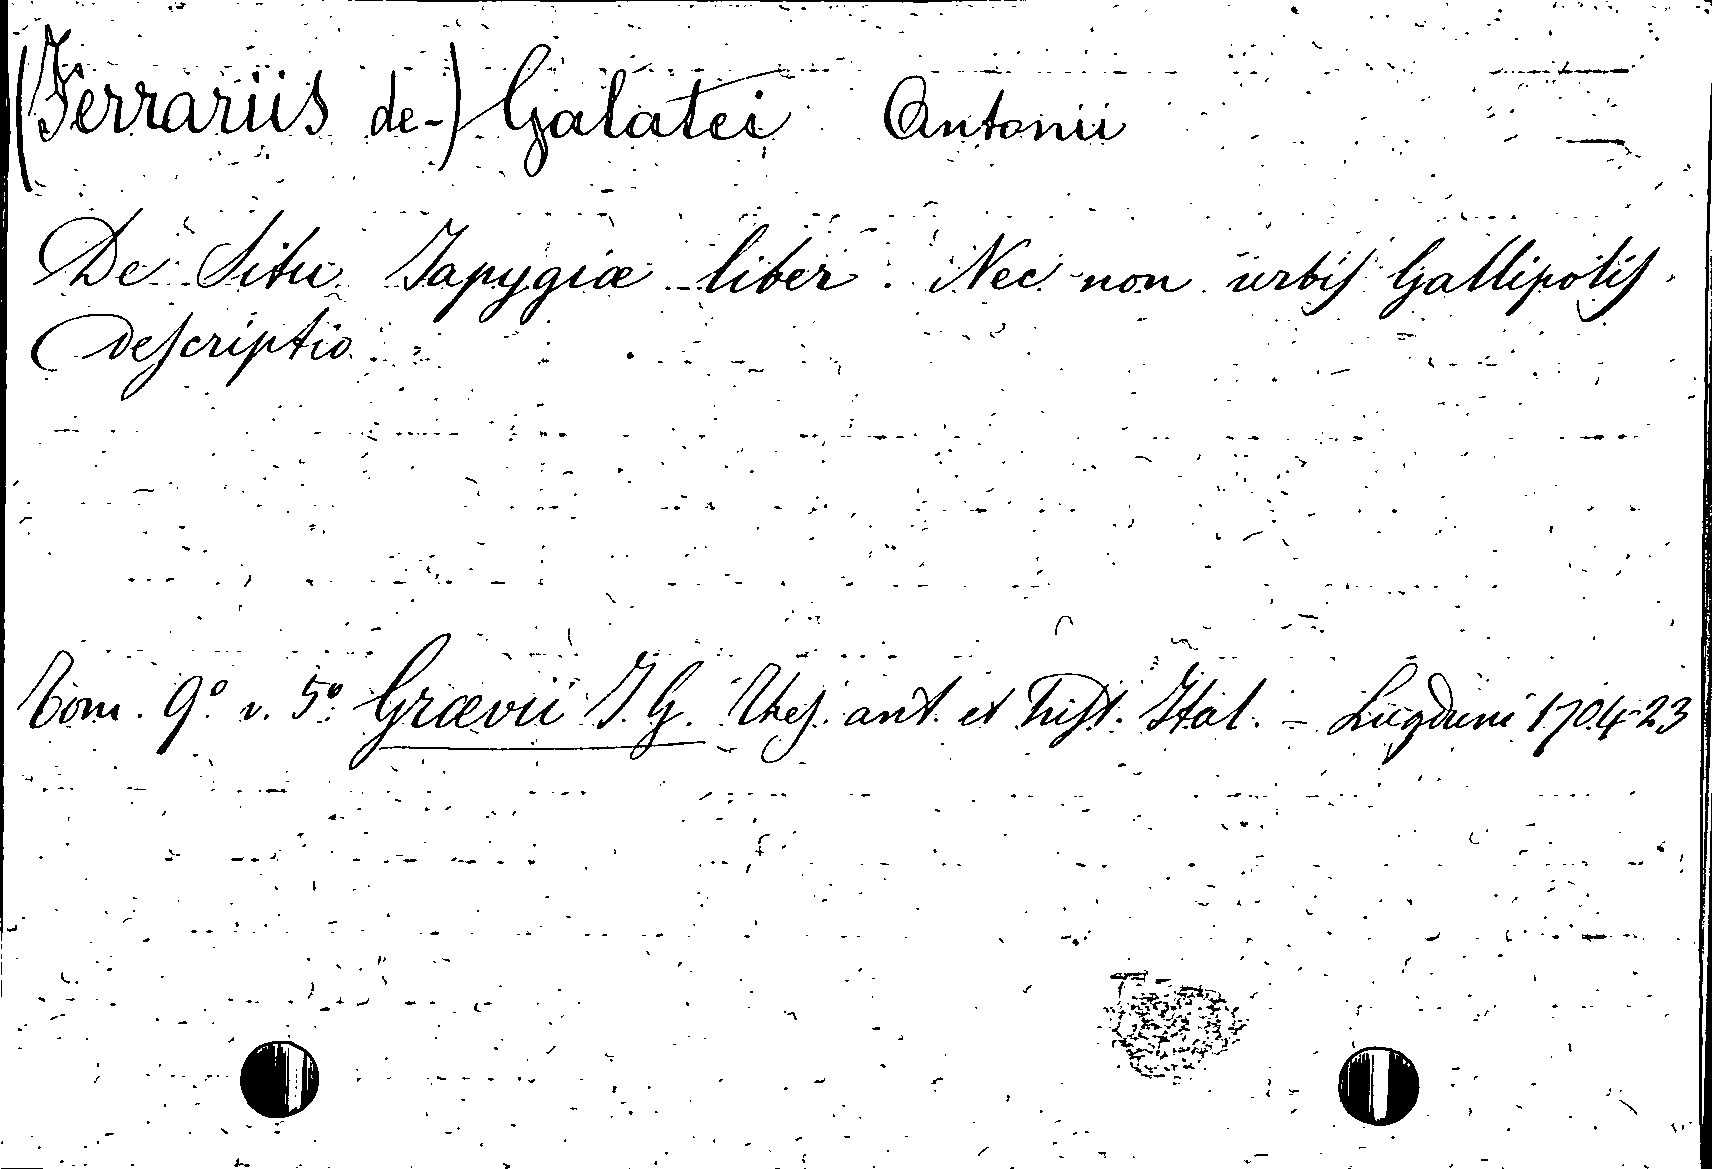 (Ferrariis de-) Galatei Antonii
De Situ Japygiæ liber. Nec non urbis Gallipolis
descriptio
Tom. 9º v. 5º Grævii J. G. Thes. ant. et hist. Ital. - Lugduni 1704-23